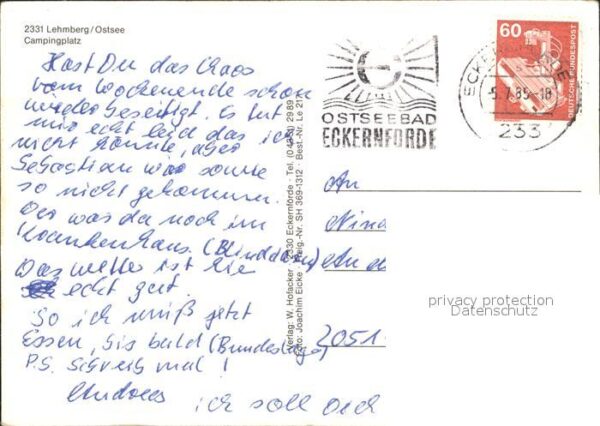 2331 Lehmberg/Ostsee
Campingplatz
Hast Du das Chaos
vom Wochenende schon
wieder beseitigt. Es tut
mir echt leid das ich
nicht konnte, aber
Sebastian wär sowie
so nicht gekommen.
Der was da noch im
Krankenhaus. (Blinddarm)
Das Wetter ist hie
echt gut.
So ich muß jetzt
Essen, bis bald (Bundesliga)
P.S. Schreib mal!
ich soll
Verlag: W. Hofacker · 2330 Eckernförde · Tel. (04351) 2989
Foto: Joachim Eicke · Freig.-Nr. SH 369-1312 · Best.-Nr. Le 21
OSTSEEBAD
ECKERNFÖRDE
ECKERNFÖRDE
-5.7.85-18
233
60
DEUTSCHE BUNDESPOST
An
Nina
An d
2051
privacy protection
Datenschutz